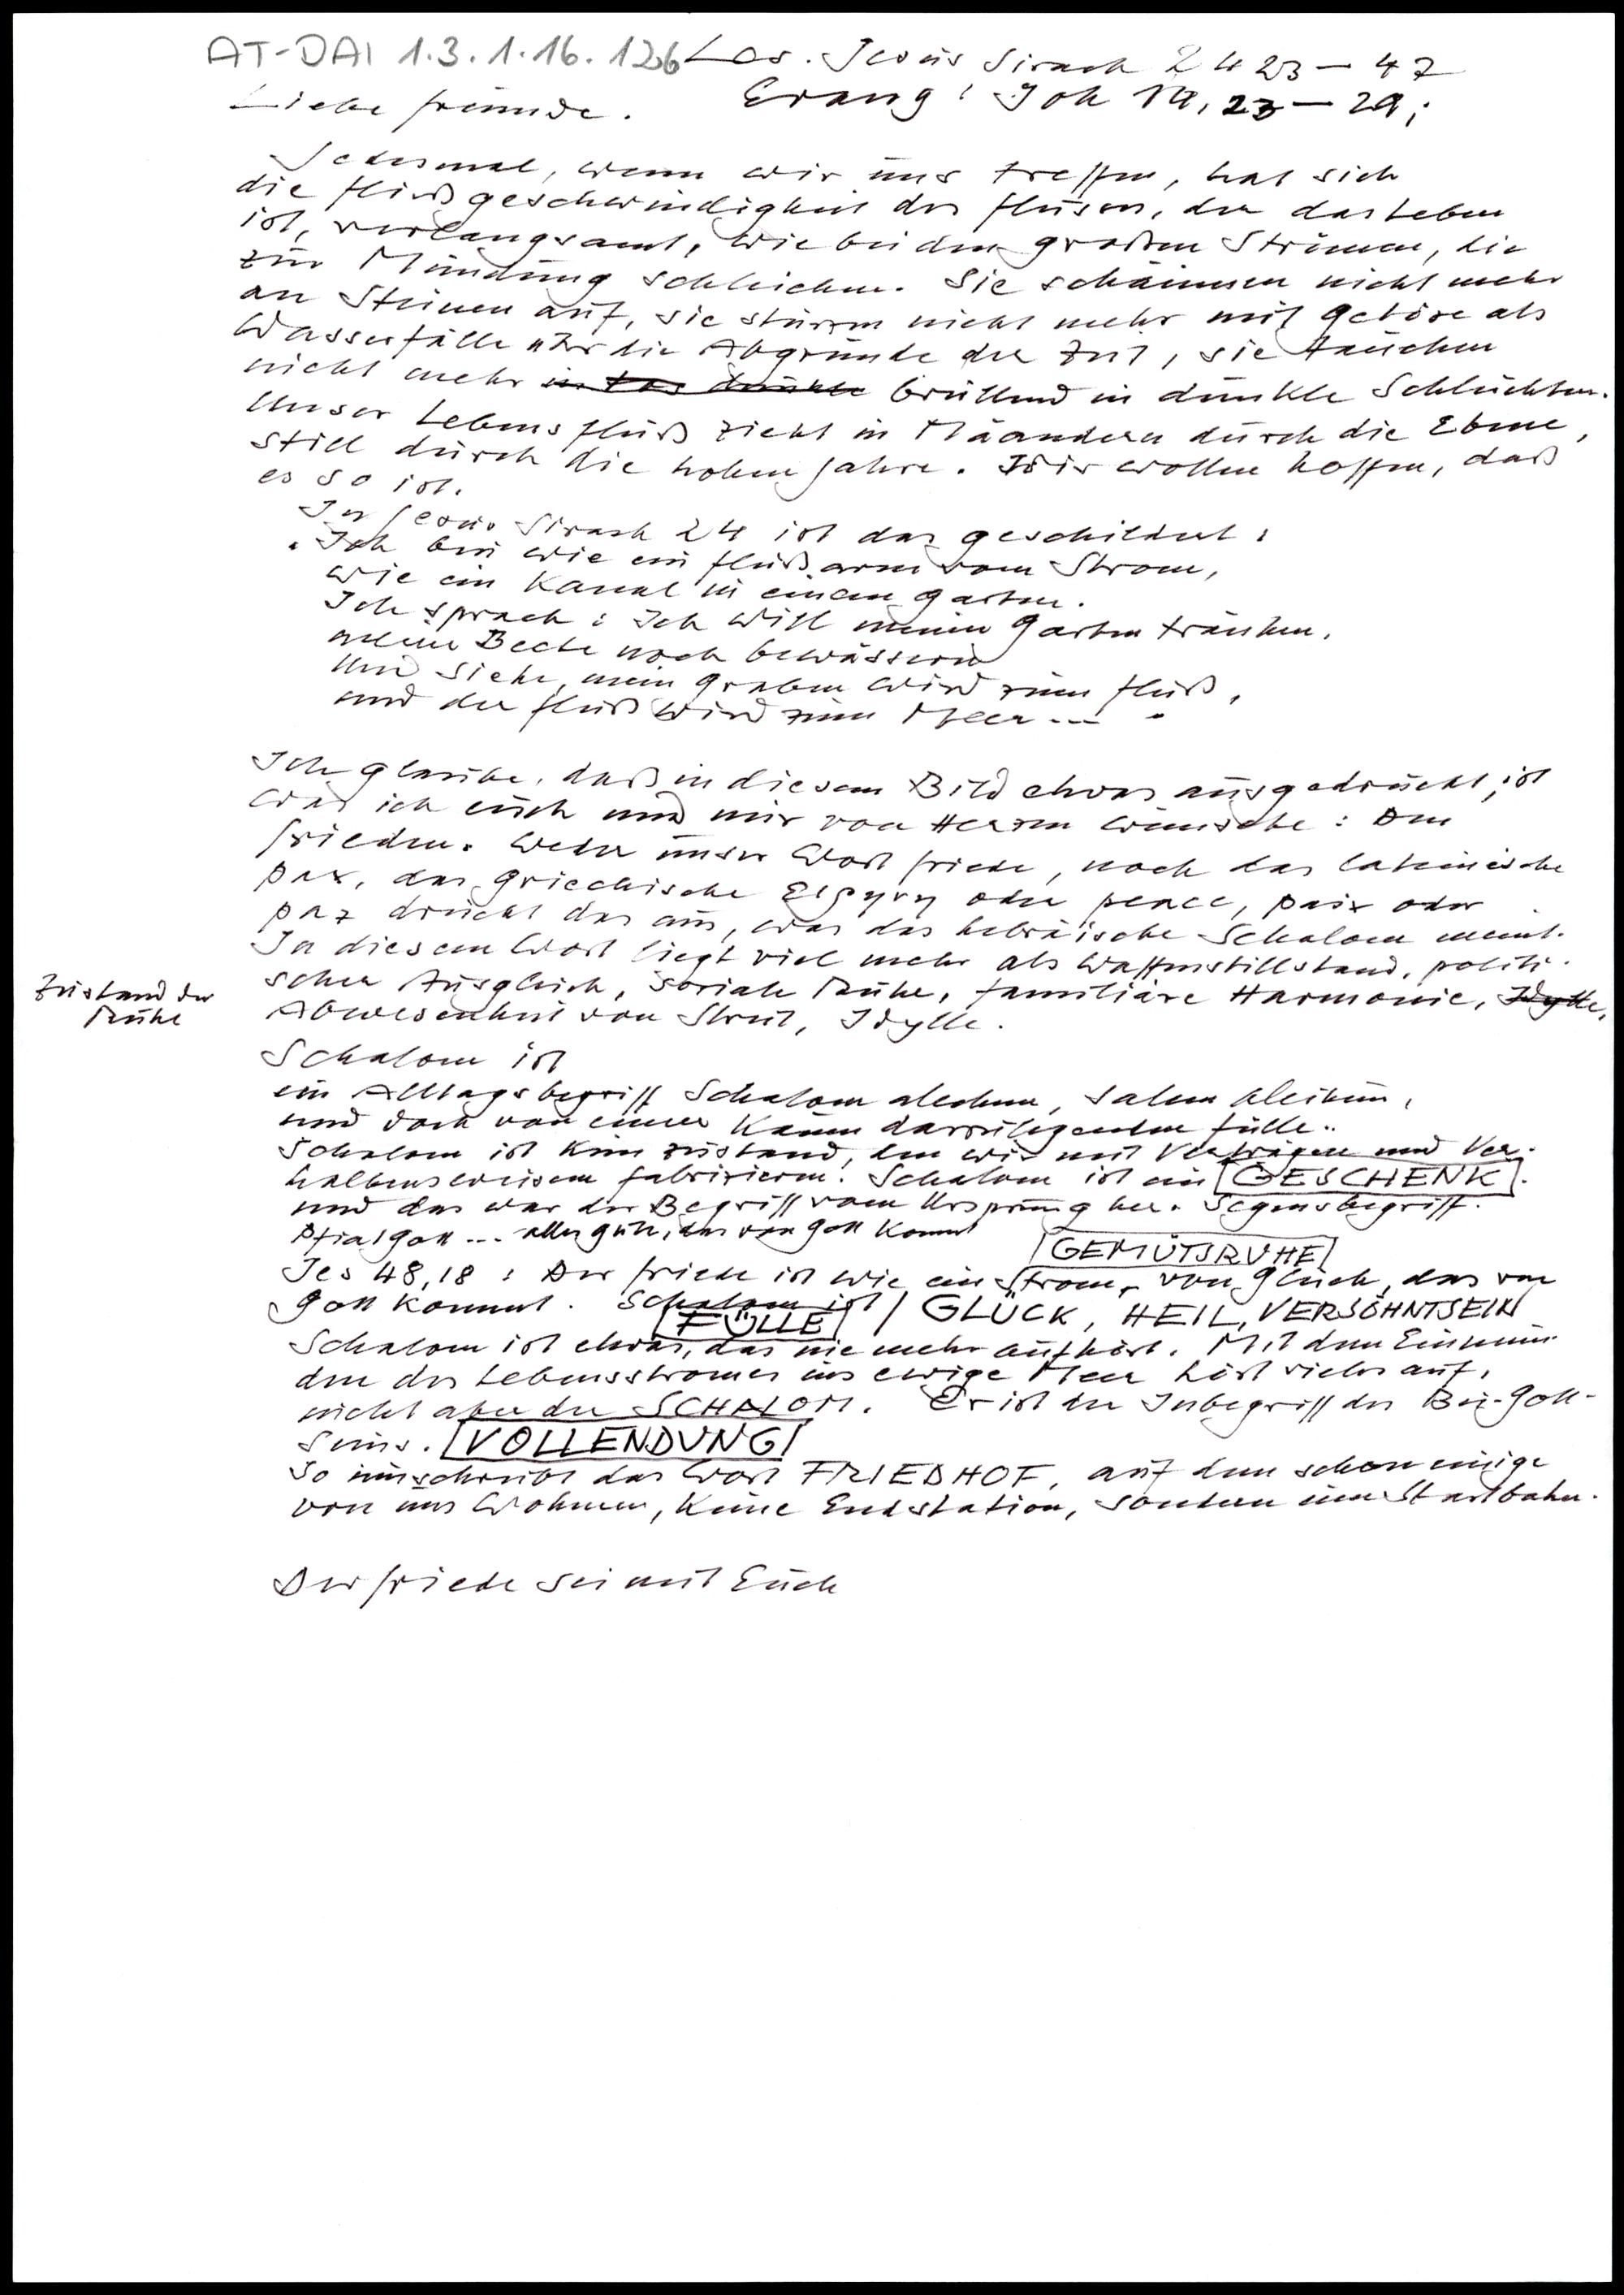 AT-DAI 1.3.1.16.126 Les. Jesus Sirach 24 23 – 47
Liebe Freunde. Evang: Joh 14, 23 – 29;
Jedesmal, wenn wir uns treffen, hat sich
die Fließgeschwindigkeit des Flusses, der das Leben
ist, verlangsamt, wie bei den großen Strömen, die
zur Mündung schleichen. Sie schäumen nicht mehr
an Steinen auf, sie stürzen nicht mehr mit Getöse als
Wasserfälle über die Abgründe der Zeit, sie tauchen
nicht mehr in das dunkle brüllend in dunkle Schluchten.
Unser Lebensfluß zieht in Mäandern durch die Ebene,
still durch die hohen Jahre. Wir wollen hoffen, daß
es so ist.
In Jesus Sirach 24 ist das geschildert:
"Ich bin wie ein Flußarm vom Strom,
wie ein Kanal in einem Garten.
Ich sprach: Ich will meinen Garten tränken,
meine Beete noch bewässern
Und siehe, mein Graben wird zum Fluß,
und der Fluß wird zum Meer ... "
Ich glaube, daß in diesem Bild etwas ausgedrückt ist,
was ich euch und mir von Herzen wünsche: Den
Frieden. Weder unser Wort Friede, noch das lateinische
pax, das griechische Eιρηνη oder peace, paix oder
paz drückt das aus, was das hebräische Schalom meint.
In diesem Wort liegt viel mehr als Waffenstillstand, politi-
scher Ausgleich, soziale Ruhe, familiäre Harmonie, Idylle,
Zustand der
Ruhe
Abwesenheit von Streit, Idylle.
Schalom ist
ein Alltagsbegriff Schalom alechem, Salem aleikum,
und doch von einer kaum darzulegenden Fülle..
Schalom ist kein Zustand, den wir mit Verträgen und Ver-
haltensweisen fabrizieren. Schalom ist ein GESCHENK.
und das war der Begriff vom Ursprung her. Segensbegriff.
Pfiat Gott ... alles Gute, das von Gott kommt
GEMÜTSRUHE
Jes 48,18: Der Friede ist wie ein Strom, von Glück, das von
Gott kommt. Schalom ist / GLÜCK, HEIL, VERSÖHNTSEIN
FÜLLE
Schalom ist etwas, das nie mehr aufhört. Mit dem Einmün-
den des Lebensstromes ins ewige Meer hört vieles auf,
nicht aber der SCHALOM. Er ist der Inbegriff des Bei-Gott-
Seins. VOLLENDUNG
So umschreibt das Wort FRIEDHOF, auf dem schon einige
von uns wohnen, keine Endstation, sondern eine Startbahn.
Der Friede sei mit Euch